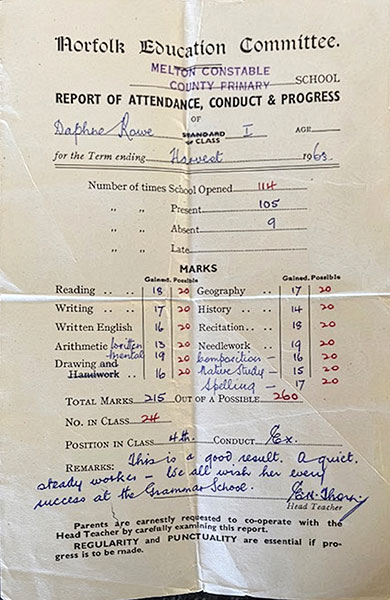 Norfolk Education Committee.
MELTON CONSTABLE
COUNTY PRIMARY SCHOOL
REPORT OF ATTENDANCE, CONDUCT & PROGRESS
OF
Daphne Rowe STANDARD or CLASS I AGE
for the Term ending Harvest 1963
Number of times School Opened 114
" " Present 105
" " Absent 9
" " Late
MARKS
Gained. Possible Gained. Possible
Reading .. .. 18 20 Geography .. .. 17 20
Writing .. .. 17 20 History .. .. 14 20
Written English 16 20 Recitation .. .. 18 20
Arithmetic written 13 20 Needlework .. 19 20
mental 19 20 Composition - 16 20
Drawing and Handwork .. 16 20 Nature Study - 15 20
Spelling - 17 20
TOTAL MARKS 215 OUT OF A POSSIBLE 260
NO. IN CLASS 24
POSITION IN CLASS 4th. CONDUCT Ex.
REMARKS: This is a good result. A quiet,
steady worker - We all wish her every
success at the Grammar School.
Head Teacher
Parents are earnestly requested to co-operate with the
Head Teacher by carefully examining this report.
REGULARITY and PUNCTUALITY are essential if pro-
gress is to be made.